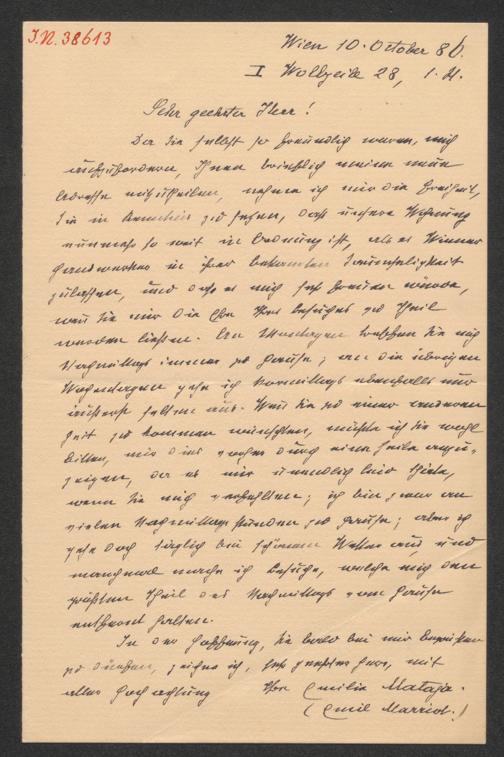 I.N. 38613
Wien 10. October 86.
I Wollzeile 28, 1. St.
Sehr geehrter Herr!
Da Sie selbst so freundlich waren, mich
aufzufordern, Ihnen brieflich meine neue
Adresse mitzutheilen, nehme ich mir die Freiheit,
Sie in Kenntniß zu setzen, daß unsere Wohnung
nunmehr so weit in Ordnung ist, als es Wiener
Handwerker in ihrer bekannten Saumseligkeit
zulassen, und daß es mich sehr freuen würde,
wenn Sie mir die Ehre Ihres Besuches zu Theil
werden ließen. An Montagen treffen Sie mich
Nachmittags immer zu Hause; an die übrigen
Wochentagen gehe ich Vormittags ebenfalls nur
äußerst selten aus. Wenn Sie zu einer anderen
Zeit zu kommen wünschten, möchte ich Sie wohl
bitten, mir dies vorher durch eine Zeile anzu-
zeigen, da es mir unendlich leid thäte,
wenn Sie mich verfehlten; ich bin zwar an
vielen Nachmittagsstunden zu Hause; aber ich
gehe doch täglich bei schönem Wetter aus, und
manchmal mache ich Besuche, welche mich den
größten Theil des Nachmittags vom Hause
entfernt halten.
In der Hoffnung, Sie bald bei mir begrüßen
zu dürfen, zeichne ich, sehr geehrter Herr, mit
aller Hochachtung Ihre Emilie Mataja.
(Emil Marriot.)